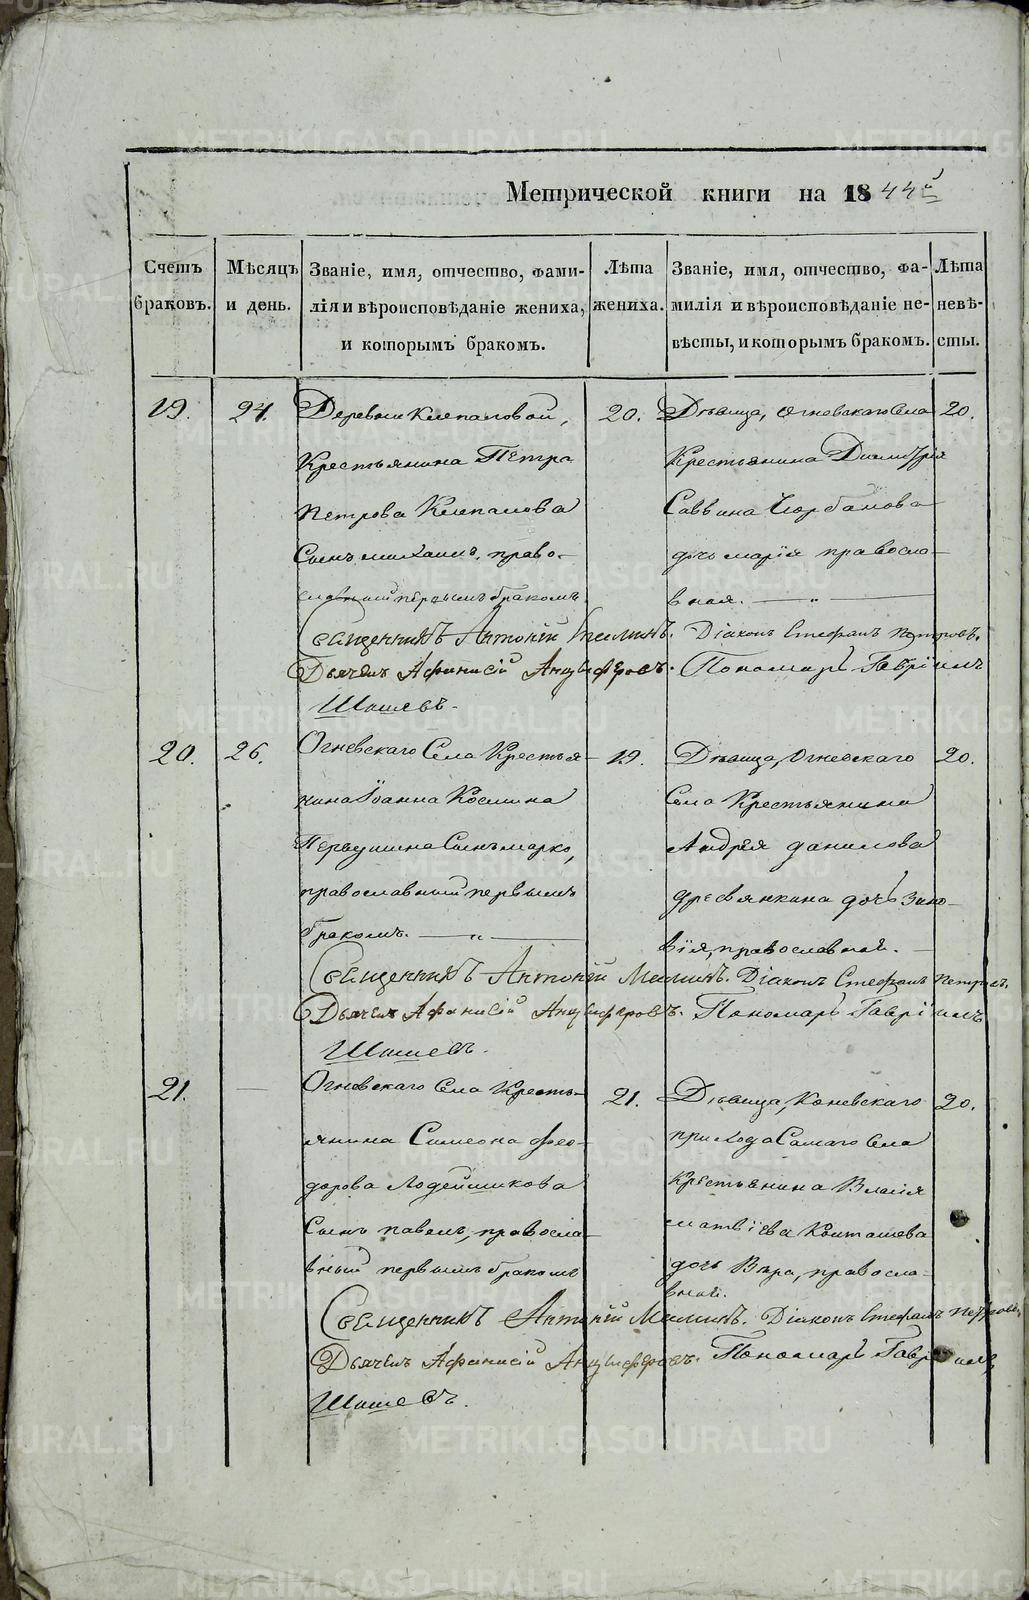 Метрической книги на 1844й
Счетъ браковъ.
Мѣсяцъ и день.
Званіе, имя, отчество, фами-
лія и вѣроисповѣданіе жениха,
и которымъ бракомъ.
Лѣта жениха.
Званіе, имя, отчество, фа-
милія и вѣроисповѣданіе не-
вѣсты, и которымъ бракомъ.
Лѣта невѣ-
сты.
19. 24. 20. 20.
Деревни Клепаловой,
Крестьянина Петра
Петрова Клепалова
Сынъ михаилъ, право-
славный первымъ бракомъ.
Дѣвица, Огневскаго Села
Крестьянина Димитрія
Саввина
дочь марія правосла-
вная. — „ —
Священникъ Антоній Діаконъ Стефанъ Петровъ.
Дьячекъ Афанасій Анцыферовъ. Пономарь Гавріилъ
Шишевъ.
20. 26. 19. 20.
Огневскаго Села Крестья-
нина Іоанна Космина
Первушина Сынъ марко,
православный первымъ
бракомъ. — „ —
Дѣвица, Огневскаго
Села Крестьянина
Андрея данилова
дресвянкина дочь зино-
вія, православной. —
Священникъ Антоній Діаконъ Стефанъ Петровъ.
Дьячекъ Афанасій Анцыферовъ. Пономарь Гавріилъ
Шишевъ.
21. — 21. 20.
Огневскаго Села Кресть-
янина Симеона фео-
дорова Лодейщикова
Сынъ павелъ, правосла-
вный первымъ бракомъ
Дѣвица, Коневскаго
прихода Самаго Села
Крестьянина Власія
матвіева
дочь Вѣра, правосла-
вной.
Священникъ Антоній Діаконъ Стефанъ Петровъ
Дьячекъ Афанасій Анцыферовъ. Пономарь Гавріилъ
Шишевъ.
METRIKI.GASO-URAL.RU